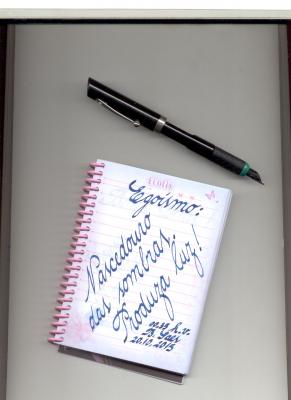 Egoísmo:
Nascedouro
das sombras;
Produza luz!
20.12.2013